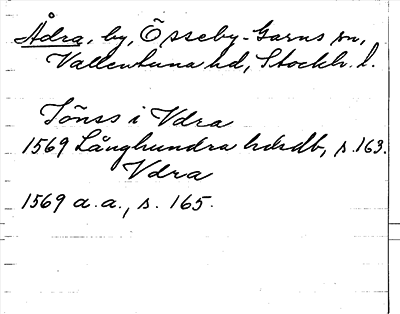 Ådra, by, Össeby-Garns sn,
Vallentuna hd, Stockh. l.
Jönss i Vdra
1569 Långhundra hdsdb, s. 163.
Vdra
1569 a. a., s. 165.